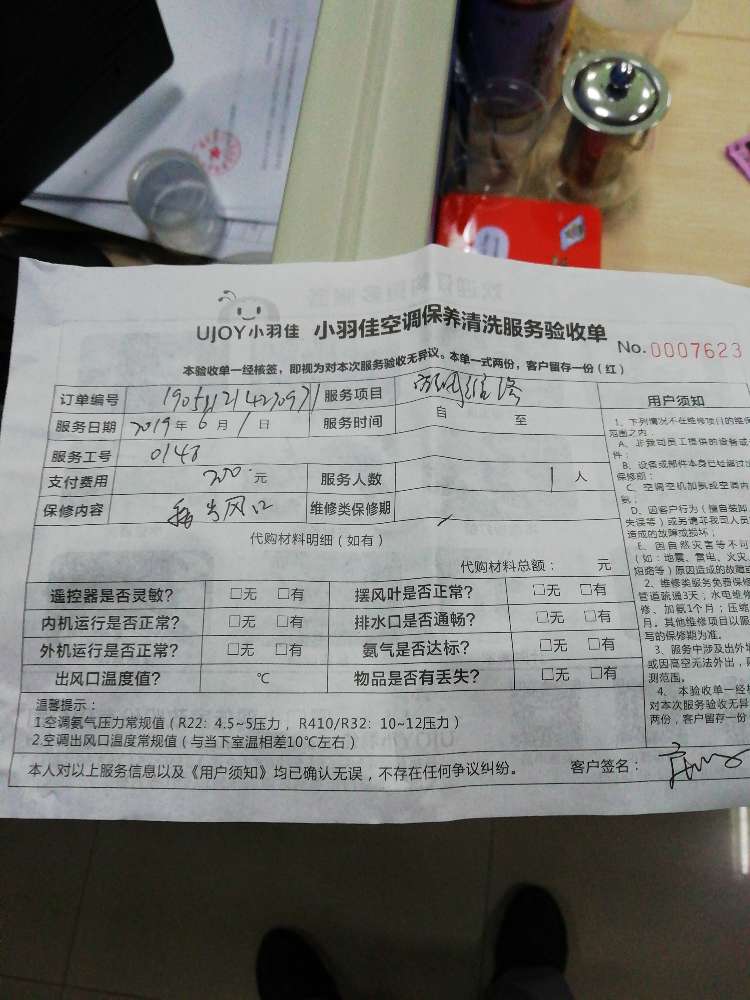 UJOY小羽佳 小羽佳空调保养清洗服务验收单
No.0007623
本验收单一经核签，即视为对本次服务验收无异议。本单一式两份，客户留存一份（红）
订单编号 服务项目 空调维修
服务日期 2019年6月1日 服务时间 自 至
服务工号 0148
支付费用 200元 服务人数 1人
保修内容 出风口 维修类保修期
代购材料明细（如有）
代购材料总额： 元
遥控器是否灵敏？ □无 □有 摆风叶是否正常？ □无 □有
内机运行是否正常？ □无 □有 排水口是否通畅？ □无 □有
外机运行是否正常？ □无 □有 氨气是否达标？ □无 □有
出风口温度值？ ℃ 物品是否有丢失？ □无 □有
温馨提示：
1.空调氨气压力常规值（R22：4.5~5压力，R410/R32：10~12压力）
2.空调出风口温度常规值（与当下室温相差10℃左右）
本人对以上服务信息以及《用户须知》均已确认无误，不存在任何争议纠纷。 客户签名：
用户须知
1、下列情况不在维修项目的维保
范围之内：
A、非我司员工提供的设备或
件；
B、设备或部件本身已经超过
保修期；
C、空调空机加氨或空调内
氨；
D、因客户行为（擅自装卸
失误等）或另请非我司人员
造成的故障或损坏；
E、因自然灾害等不可
（如：地震、雷电、火灾、
短路等）原因造成的故障或
2、维修类服务免费保修
管道疏通3天，水电维修
修、加氨1个月；压缩
月。其他维修项目以服
写的保修期为准。
3、服务中涉及出外墙
或因高空无法外出，
测范围。
4、本验收单一经
对本次服务验收无异
两份，客户留存一份